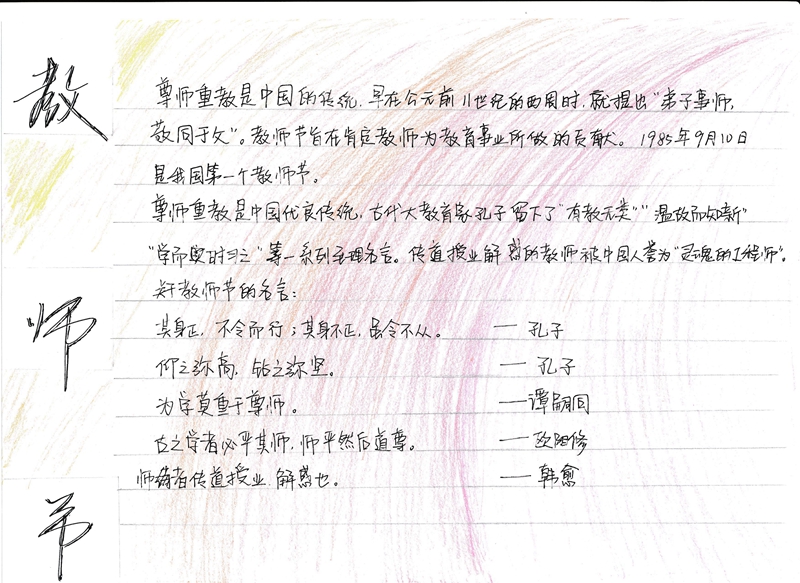 教
师
节
尊师重教是中国的传统,早在公元前11世纪的西周时,就提出“弟子事师,
敬同于父”。教师节旨在肯定教师为教育事业所做的贡献。1985年9月10日
是我国第一个教师节。
尊师重教是中国优良传统,古代大教育家孔子留下了“有教无类”“温故而知新”
“学而时习之”等一系列至理名言。传道授业解惑的教师被中国人誉为“灵魂的工程师”。
关于教师节的名言:
其身正,不令而行;其身不正,虽令不从。 —孔子
仰之弥高,钻之弥坚。 —孔子
为学莫重于尊师。 —谭嗣同
古之学者必严其师,师严然后道尊。 —欧阳修
师者传道授业 解惑也。 —韩愈